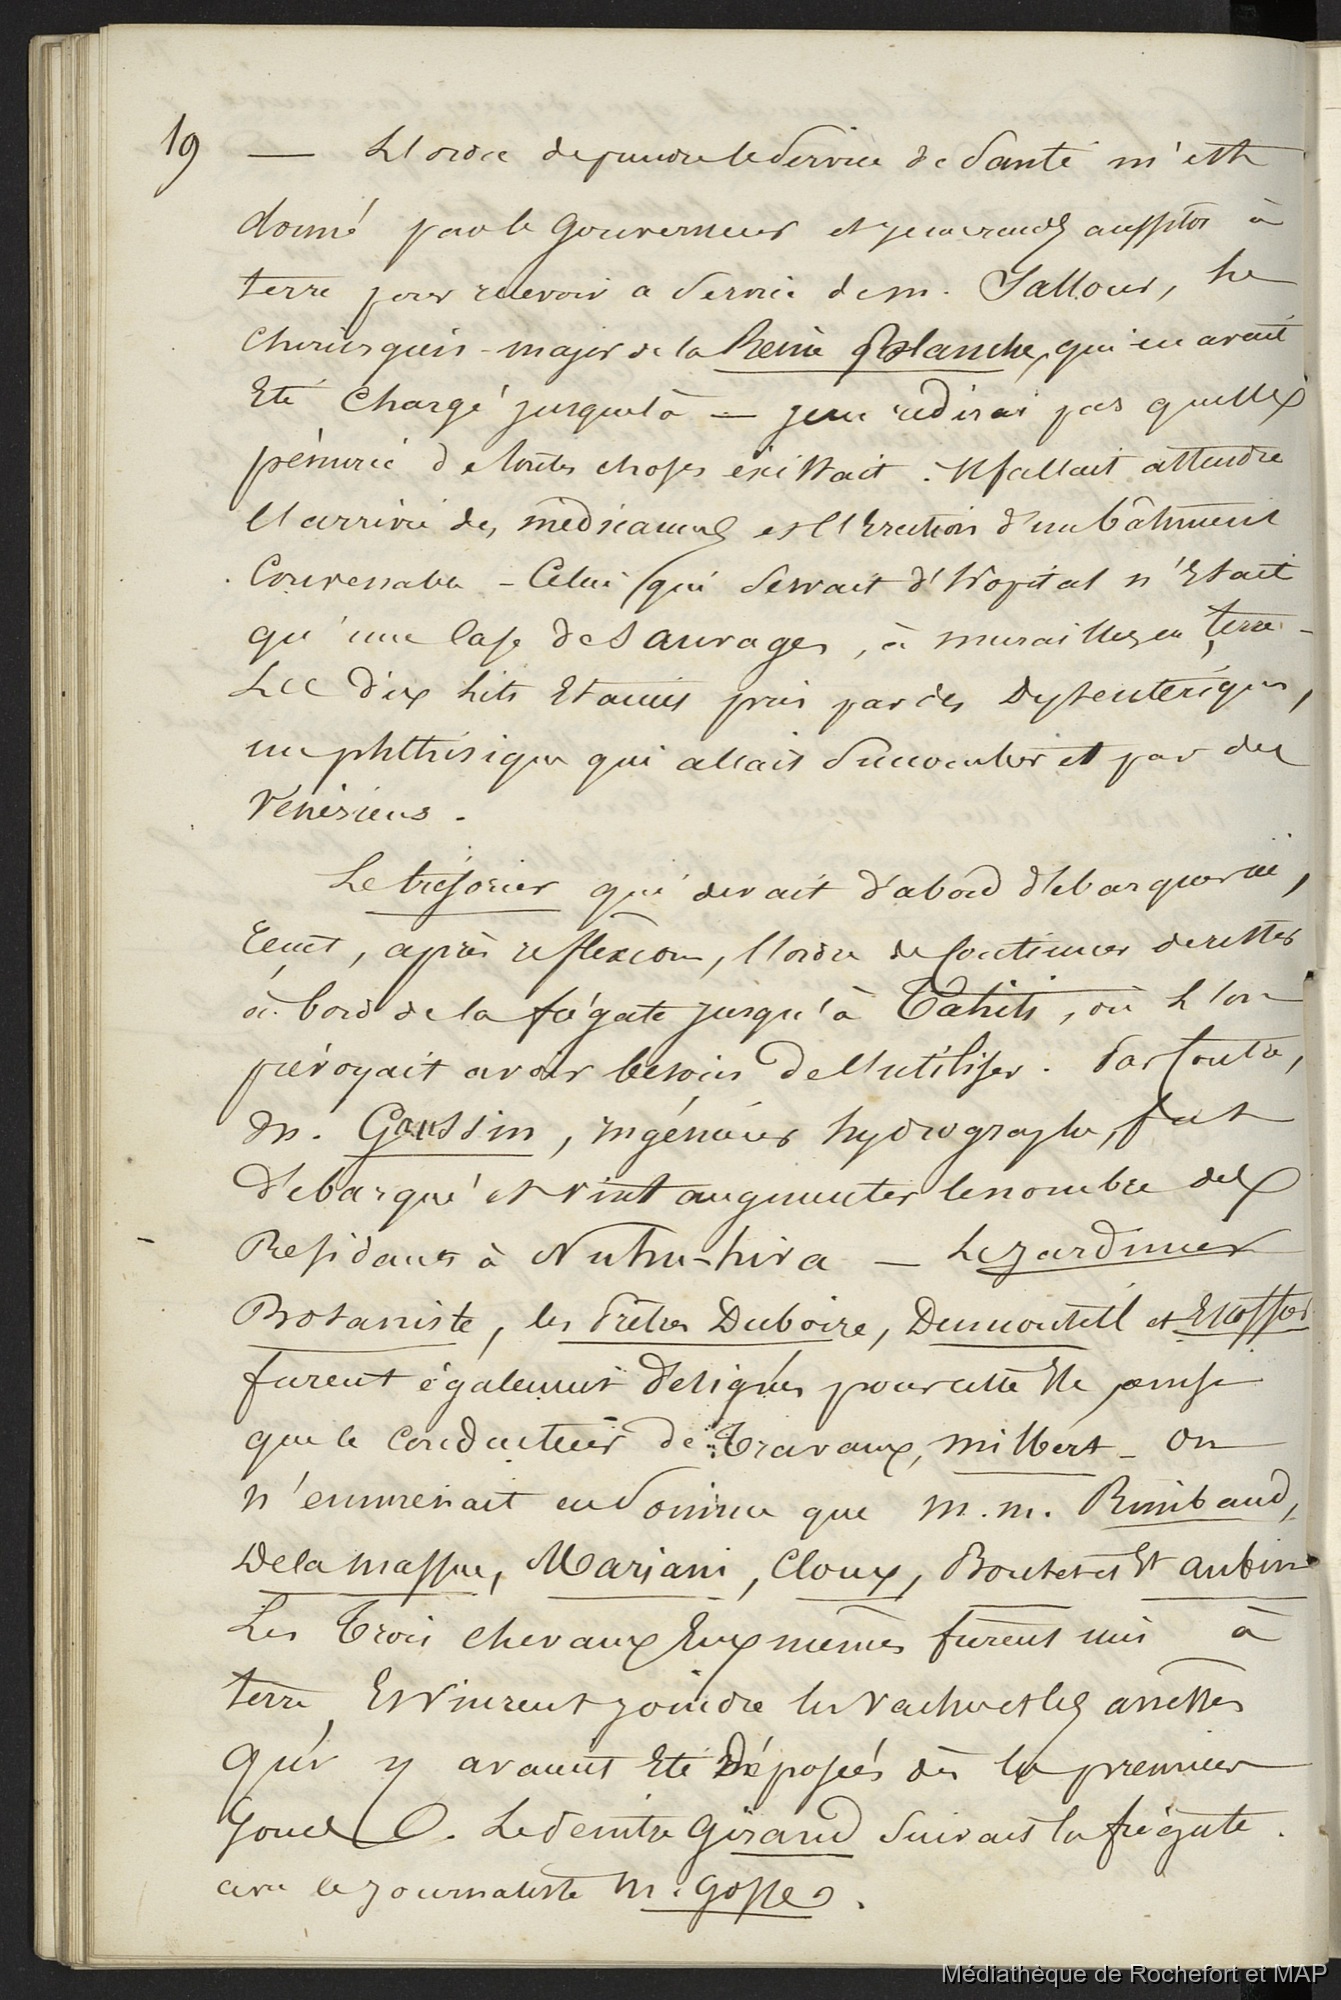 19 — L'ordre de prendre le Service de Santé m'est
donné par le Gouverneur et je me rends aussitôt à
terre pour recevoir ce Service de M. Sallour, le
Chirurgien-major de la Reine Blanche, qui en avait
Eté Chargé jusque là — je ne redirai pas quelle
pénurie de toutes choses existait. Il fallait attendre
l'arrivée des médicaments et l'Erection d'un bâtiment
Convenable – Celui qui Servait d'hopital n'Etait
qu'une Case de Sauvages, à murailles en terre –
Les dix lits Etaient pris par des Dysenteriques,
un phthisique qui allait Succomber et par des
Vénériens.
Le trésorier qui devait d'abord débarquer ici,
reçut, après reflexion, l'ordre de Continuer de rester
à bord de la frégate jusqu'à Tahiti, où l'on
prévoyait avoir besoin de l'utiliser. Par Contre,
M. Gaussin, ingénieur hydrographe, fut
débarqué et vint augmenter le nombre des
Residants à Nuku-hiva — Le jardinier
Botaniste, les Prêtres Duboize, Dumouteil et
furent également désignés pour cette Ile ainsi
que le Conducteur de Travaux, Milbert – On
n'emmenait en Somme que M.M. Rimbaud,
Delamassue, Mariani, Cloux, Boutet et Aubin
Les Trois Chevaux Eux mêmes furent mis à
terre Et Vinrent joindre les Vaches et les anesses
qui y avaient Eté Déposées dès le premier
jour. Le Peintre Girard Suivait la frégate
avec le journaliste M. Gosse.
Médiathèque de Rochefort et MAP